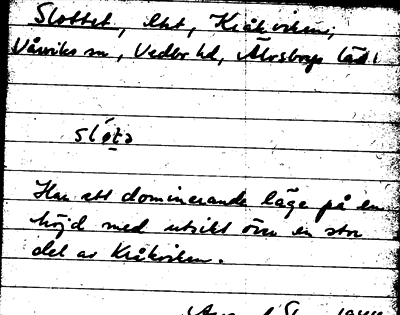 Slottet, lht, Kråkviken;
Vårviks sn, Vedbo hd, Älvsborgs län
slo̱tə
Har ett dominerande läge på en
höjd med utsikt över en stor
del av Kråkviken.